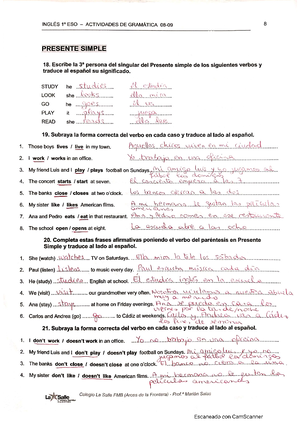 INGLÉS 1º ESO – ACTIVIDADES DE GRAMÁTICA 08-09 8
PRESENTE SIMPLE
18. Escribe la 3ª persona del singular del Presente simple de los siguientes verbos y
traduce al español su significado.
STUDY he studies Él estudia
LOOK she looks ella mira
GO he goes él va
PLAY it plays juega
READ she reads ella lee
19. Subraya la forma correcta del verbo en cada caso y traduce al lado al español.
1. Those boys lives / live in my town. Aquellos chicos viven en mi ciudad
2. I work / works in an office. Yo trabajo en una oficina
3. My friend Luis and I play / plays football on Sundays. Mi amigo Luis y yo jugamos al
fútbol los domingos
4. The concert starts / start at seven. El concierto empieza a las 7
5. The banks close / closes at two o'clock. Los bancos cierran a las dos
6. My sister like / likes American films. A mi hermana le gustan las películas
americanas
7. Ana and Pedro eats / eat in that restaurant. Ana y Pedro comen en ese restaurante
8. The school open / opens at eight. La escuela abre a las ocho
20. Completa estas frases afirmativas poniendo el verbo del paréntesis en Present
Simple y traduce al lado al español.
1. She (watch) watches TV on Saturdays. Ella mira la tele los sábados
2. Paul (listen) listens to music every day. Paul escucha música cada día
3. He (study) studies English at school. Él estudia inglés en la escuela
4. We (visit) visit our grandmother very often.
5. Ana (stay) stays at home on Friday evenings.
6. Carlos and Andres (go) go to Cádiz at weekends.
21. Subraya la forma correcta del verbo en cada caso y traduce al lado al español.
1. I don't work / doesn't work in an office. Yo no trabajo en una oficina
2. My friend Luis and I don't play / doesn't play football on Sundays. Mi amigo Luis y yo no
jugamos al fútbol los domingos
3. The banks don't close / doesn't close at one o'clock. El banco no cierra a la una
4. My sister don't like / doesn't like American films. A mi hermana no le gustan las
películas americanas
La Salle Colegio La Salle FMB (Arcos de la Frontera) - Prof.ª Maribel Salas
Escaneado con CamScanner